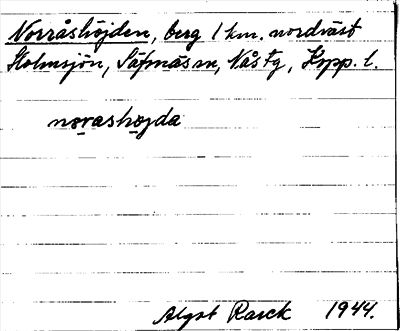 Norråshöjden, berg 1 km. nordväst
Holmsjön, Säfsnäs sn, Nås tg, Kopp. l.
noråshöjda
Algot Rarck 1944.